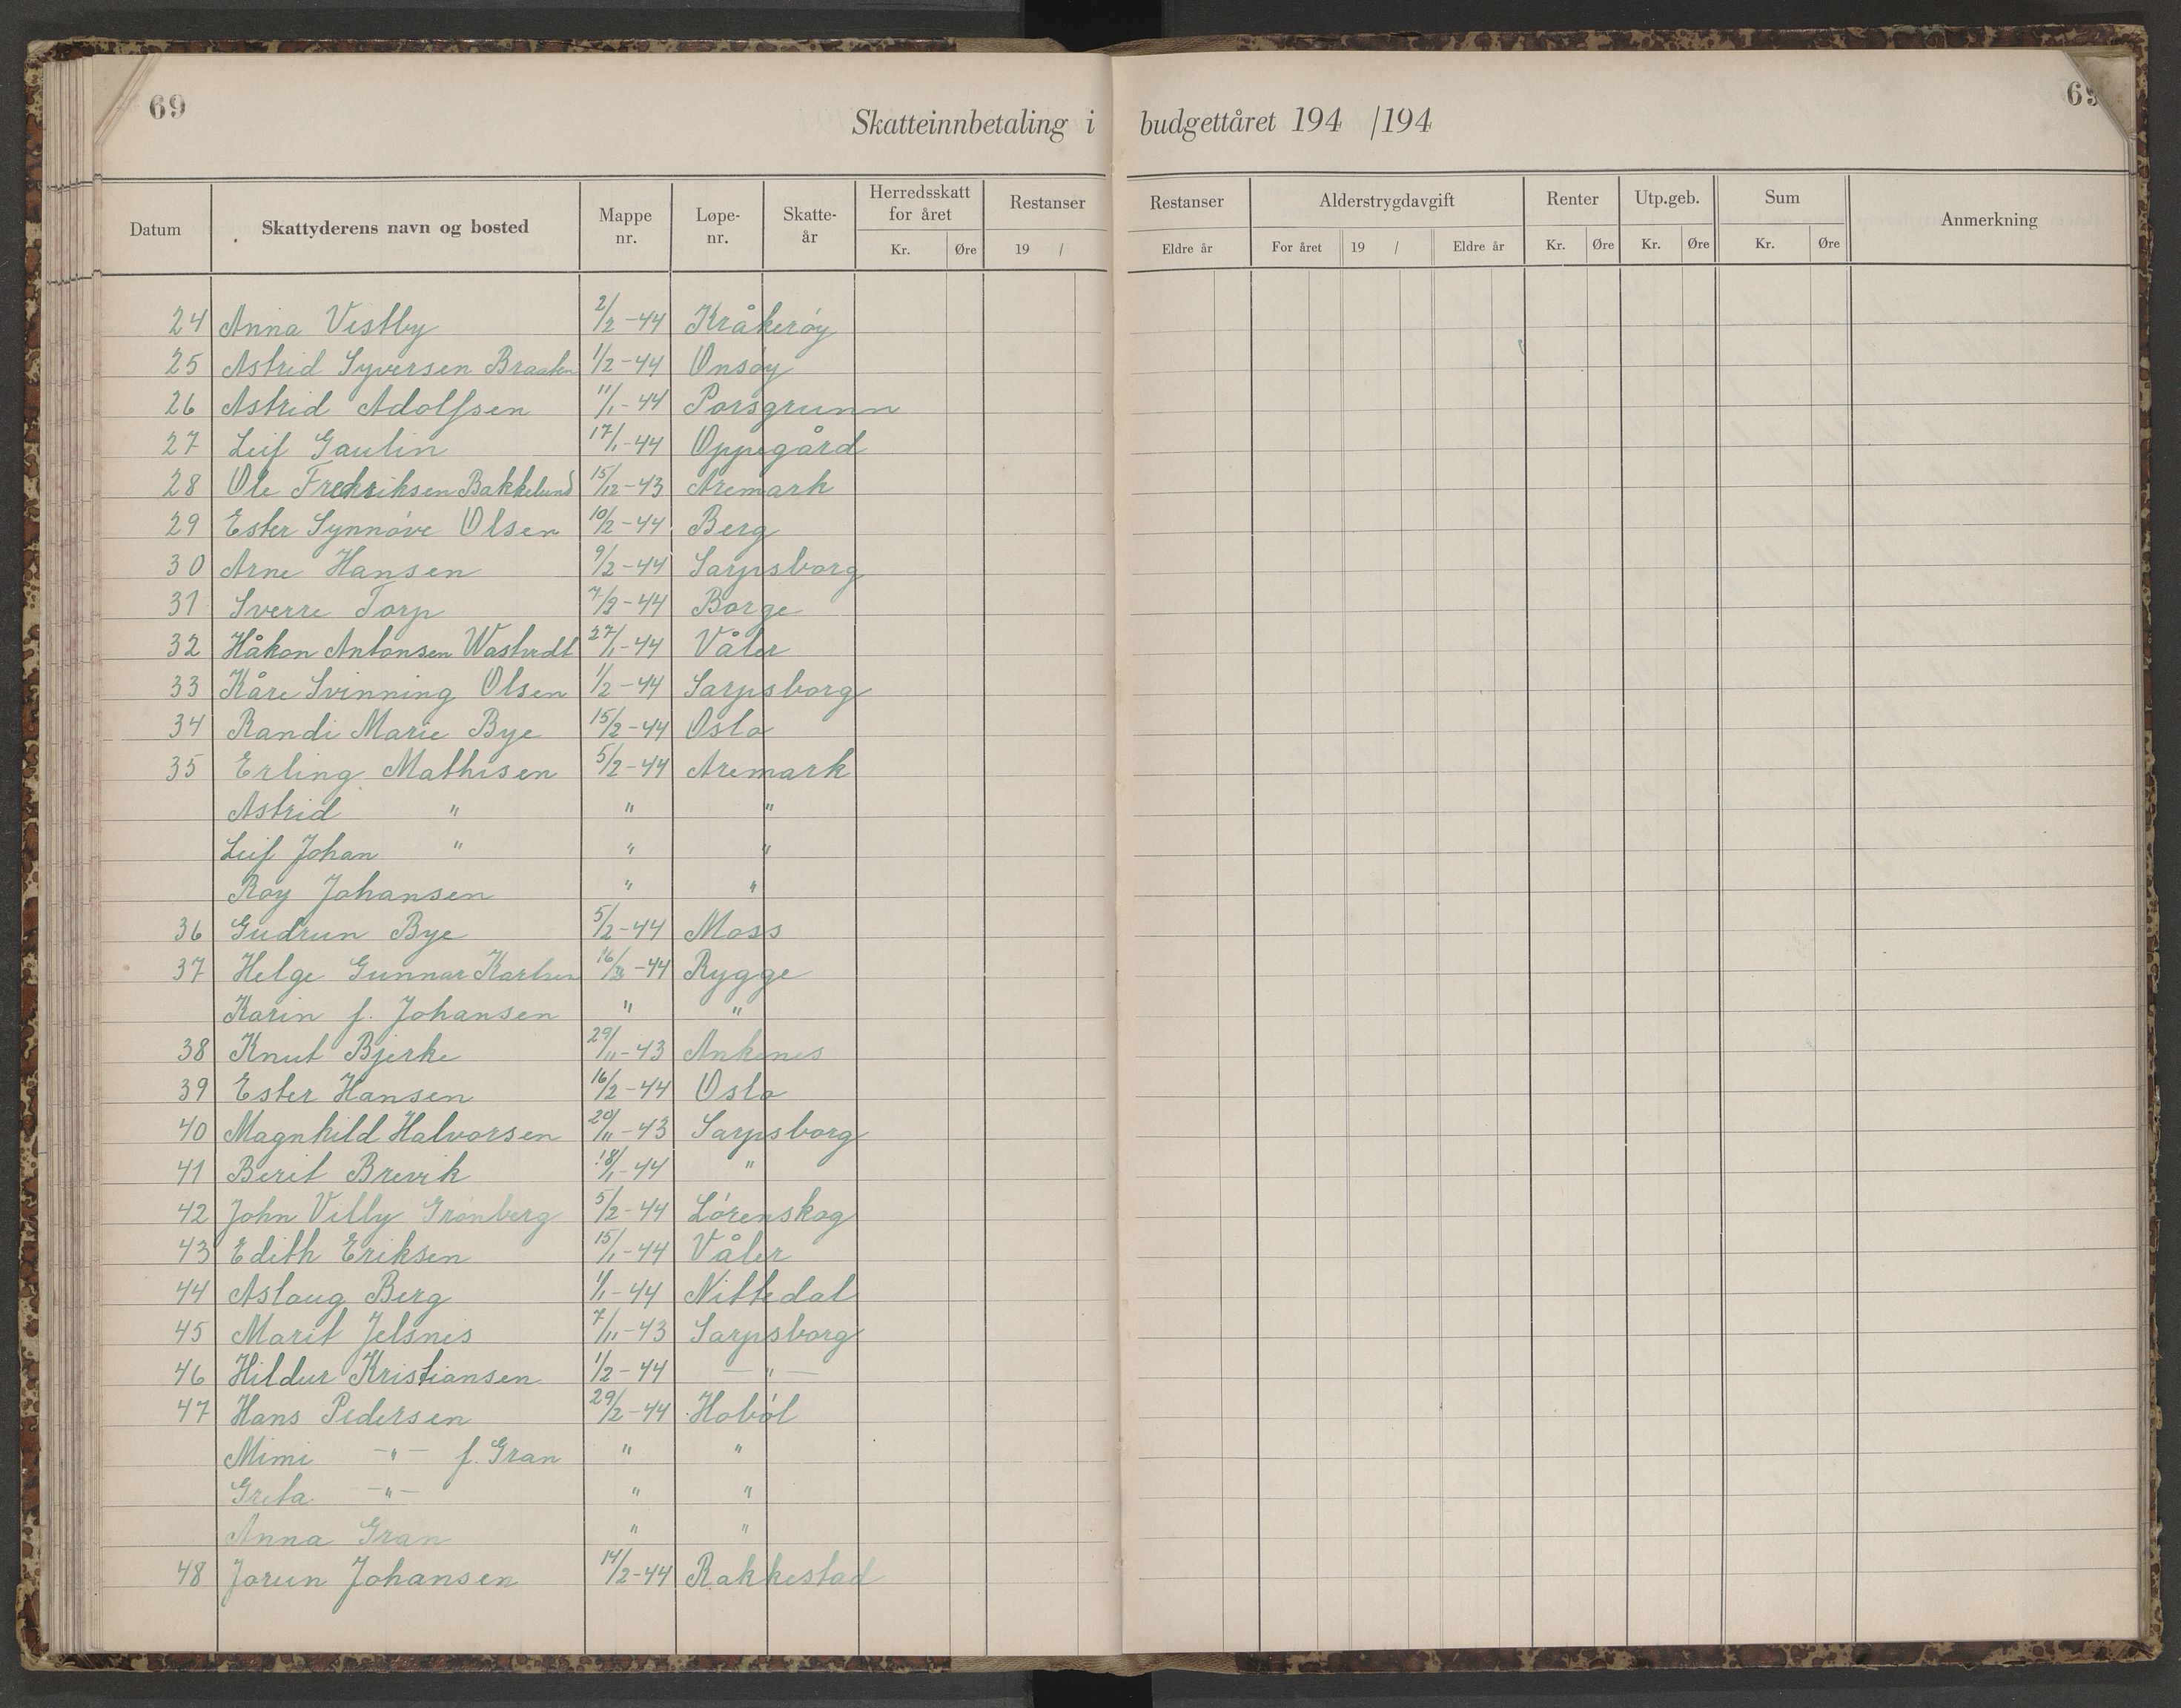 69
69
Skatteinnbetaling i budgettåret 194 /194
Datum Skattyderens navn og bosted Mappe nr. Løpe-nr. Skatte-år Herredsskatt for året Restanser Restanser Alderstrygdavgift Renter Utp.geb. Sum Anmerkning
Kr. Øre 19 / Eldre år For året 19 / Eldre år Kr. Øre Kr. Øre Kr. Øre
24 Anna Vestby 2/2-44 Kråkerøy
25 Astrid Syversen Braaten 1/2-44 Onsøy
26 Astrid Adolfsen 11/1-44 Porsgrunn
27 Leif Gaulin 17/1-44 Oppegård
28 Ole Fredriksen Bakkelund 15/12-43 Aremark
29 Ester Synnøve Olsen 10/2-44 Berg
30 Arne Hansen 9/2-44 Sarpsborg
31 Sverre Torp 7/2-44 Borge
32 Håkon Antonsen 27/1-44 Våler
33 Kåre Svinning Olsen 1/2-44 Sarpsborg
34 Randi Marie Bye 15/2-44 Oslo
35 Erling Mathisen 5/2-44 Aremark
Astrid " " "
Leif Johan " " "
Roy Johansen " "
36 Gudrun Bye 5/2-44 Moss
37 Helge Gunnar Karlsen -44 Rygge
Karin f. Johansen " "
38 Knut Bjerke 29/11-43 Ankenes
39 Ester Hansen 16/2-44 Oslo
40 Magnhild Halvorsen 20/11-43 Sarpsborg
41 Berit Brevik 18/1-44 "
42 John Villy Grønberg 5/2-44 Lørenskog
43 Edith Eriksen 15/1-44 Våler
44 Aslaug Berg 1/1-44 Nittedal
45 Marit Jelsnes 7/11-43 Sarpsborg
46 Hildur Kristiansen 1/2-44 — " —
47 Hans Pedersen 29/2-44 Hobøl
Mimi — " — f. Gran " "
Greta — " — " "
Anna Gran " "
48 Jorun Johansen 14/2-44 Rakkestad